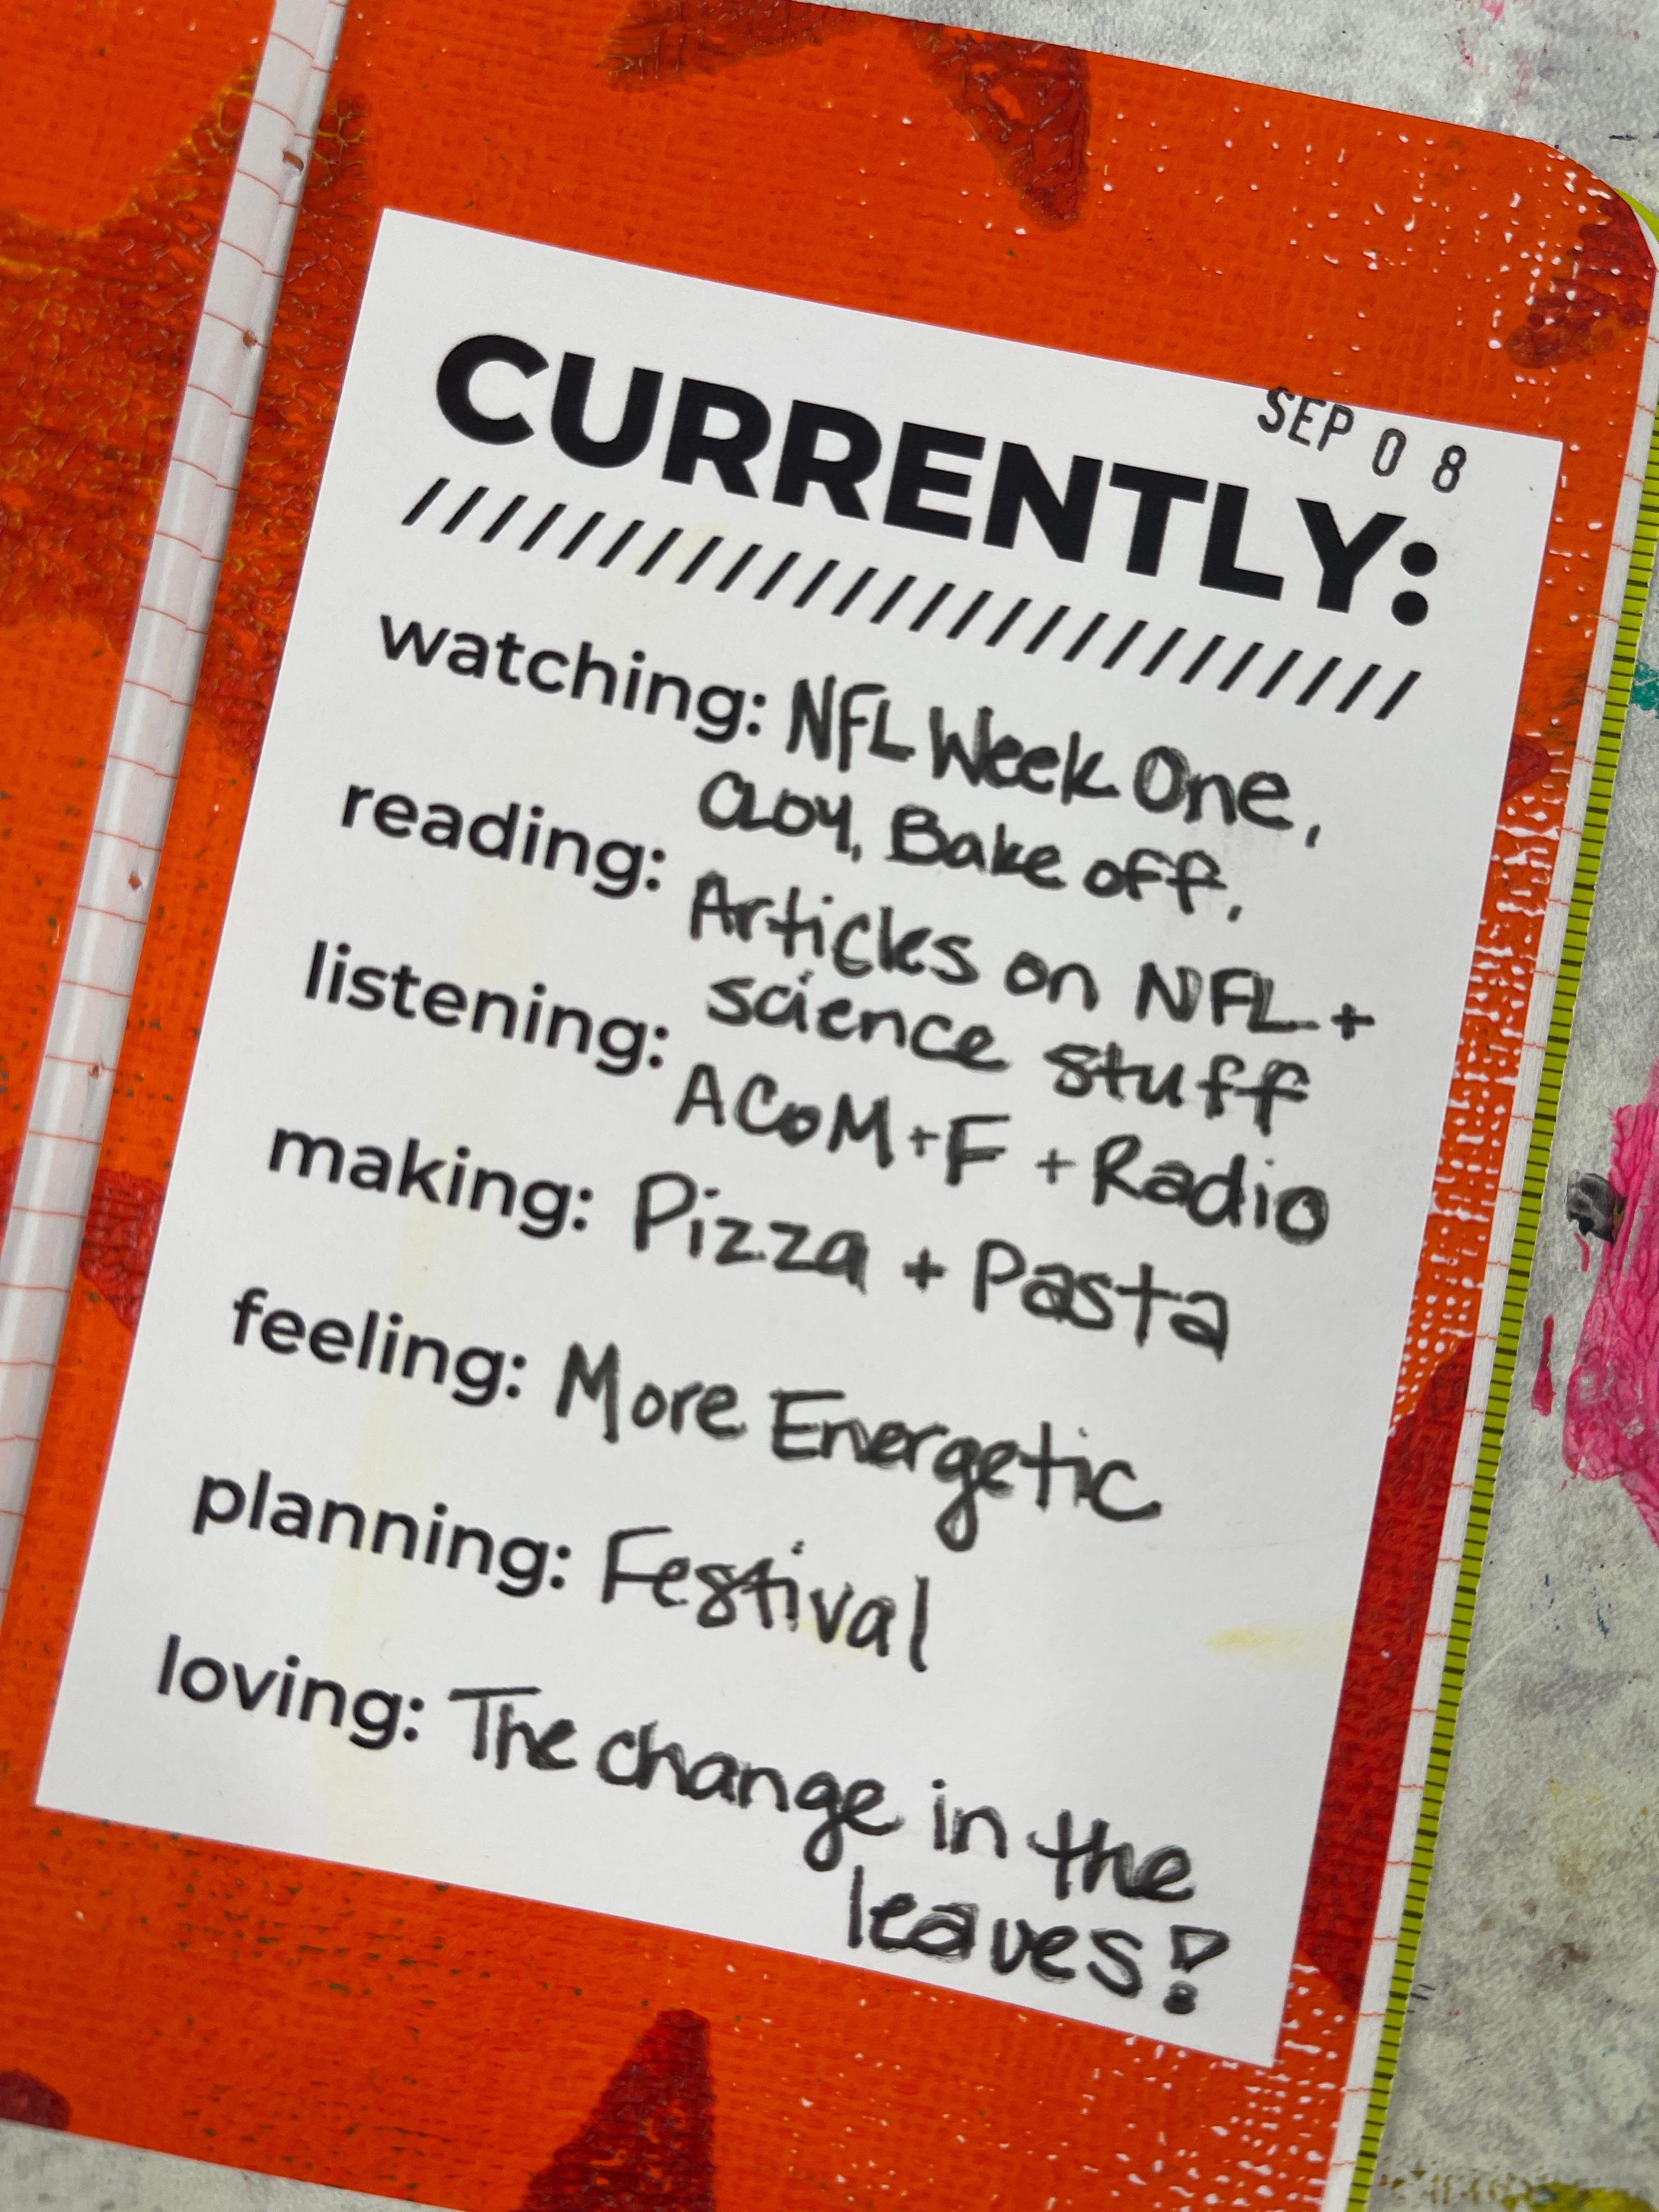 SEP 08
CURRENTLY:
////////////////////////// 
watching: NFL Week One,
CLOY, Bake off,
reading: Articles on NFL +
science stuff
listening: ACoM+F + Radio
making: Pizza + Pasta
feeling: More Energetic
planning: Festival
loving: The change in the
leaves!